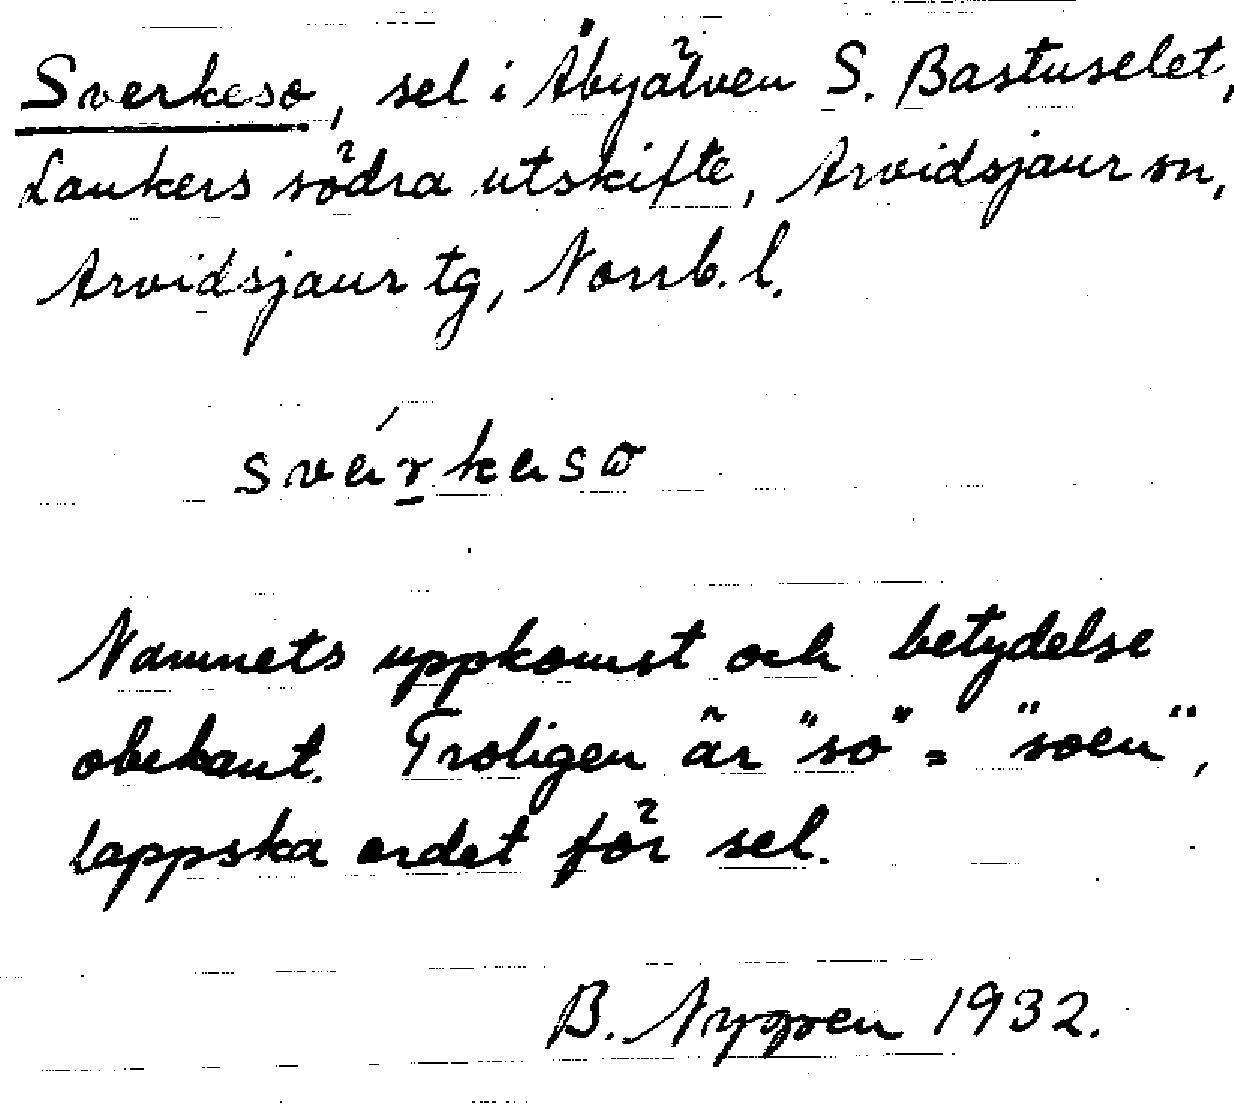 Sverkeso, sel i Åbyälven S. Bastuselet,
Laukers södra utskifte, Arvidsjaur sn,
Arvidsjaur tg, Norrb. l.
Namnets uppkomst och betydelse
obekant. Troligen är "so" = "soen",
lappska ordet för sel.
B. Nygren 1932.